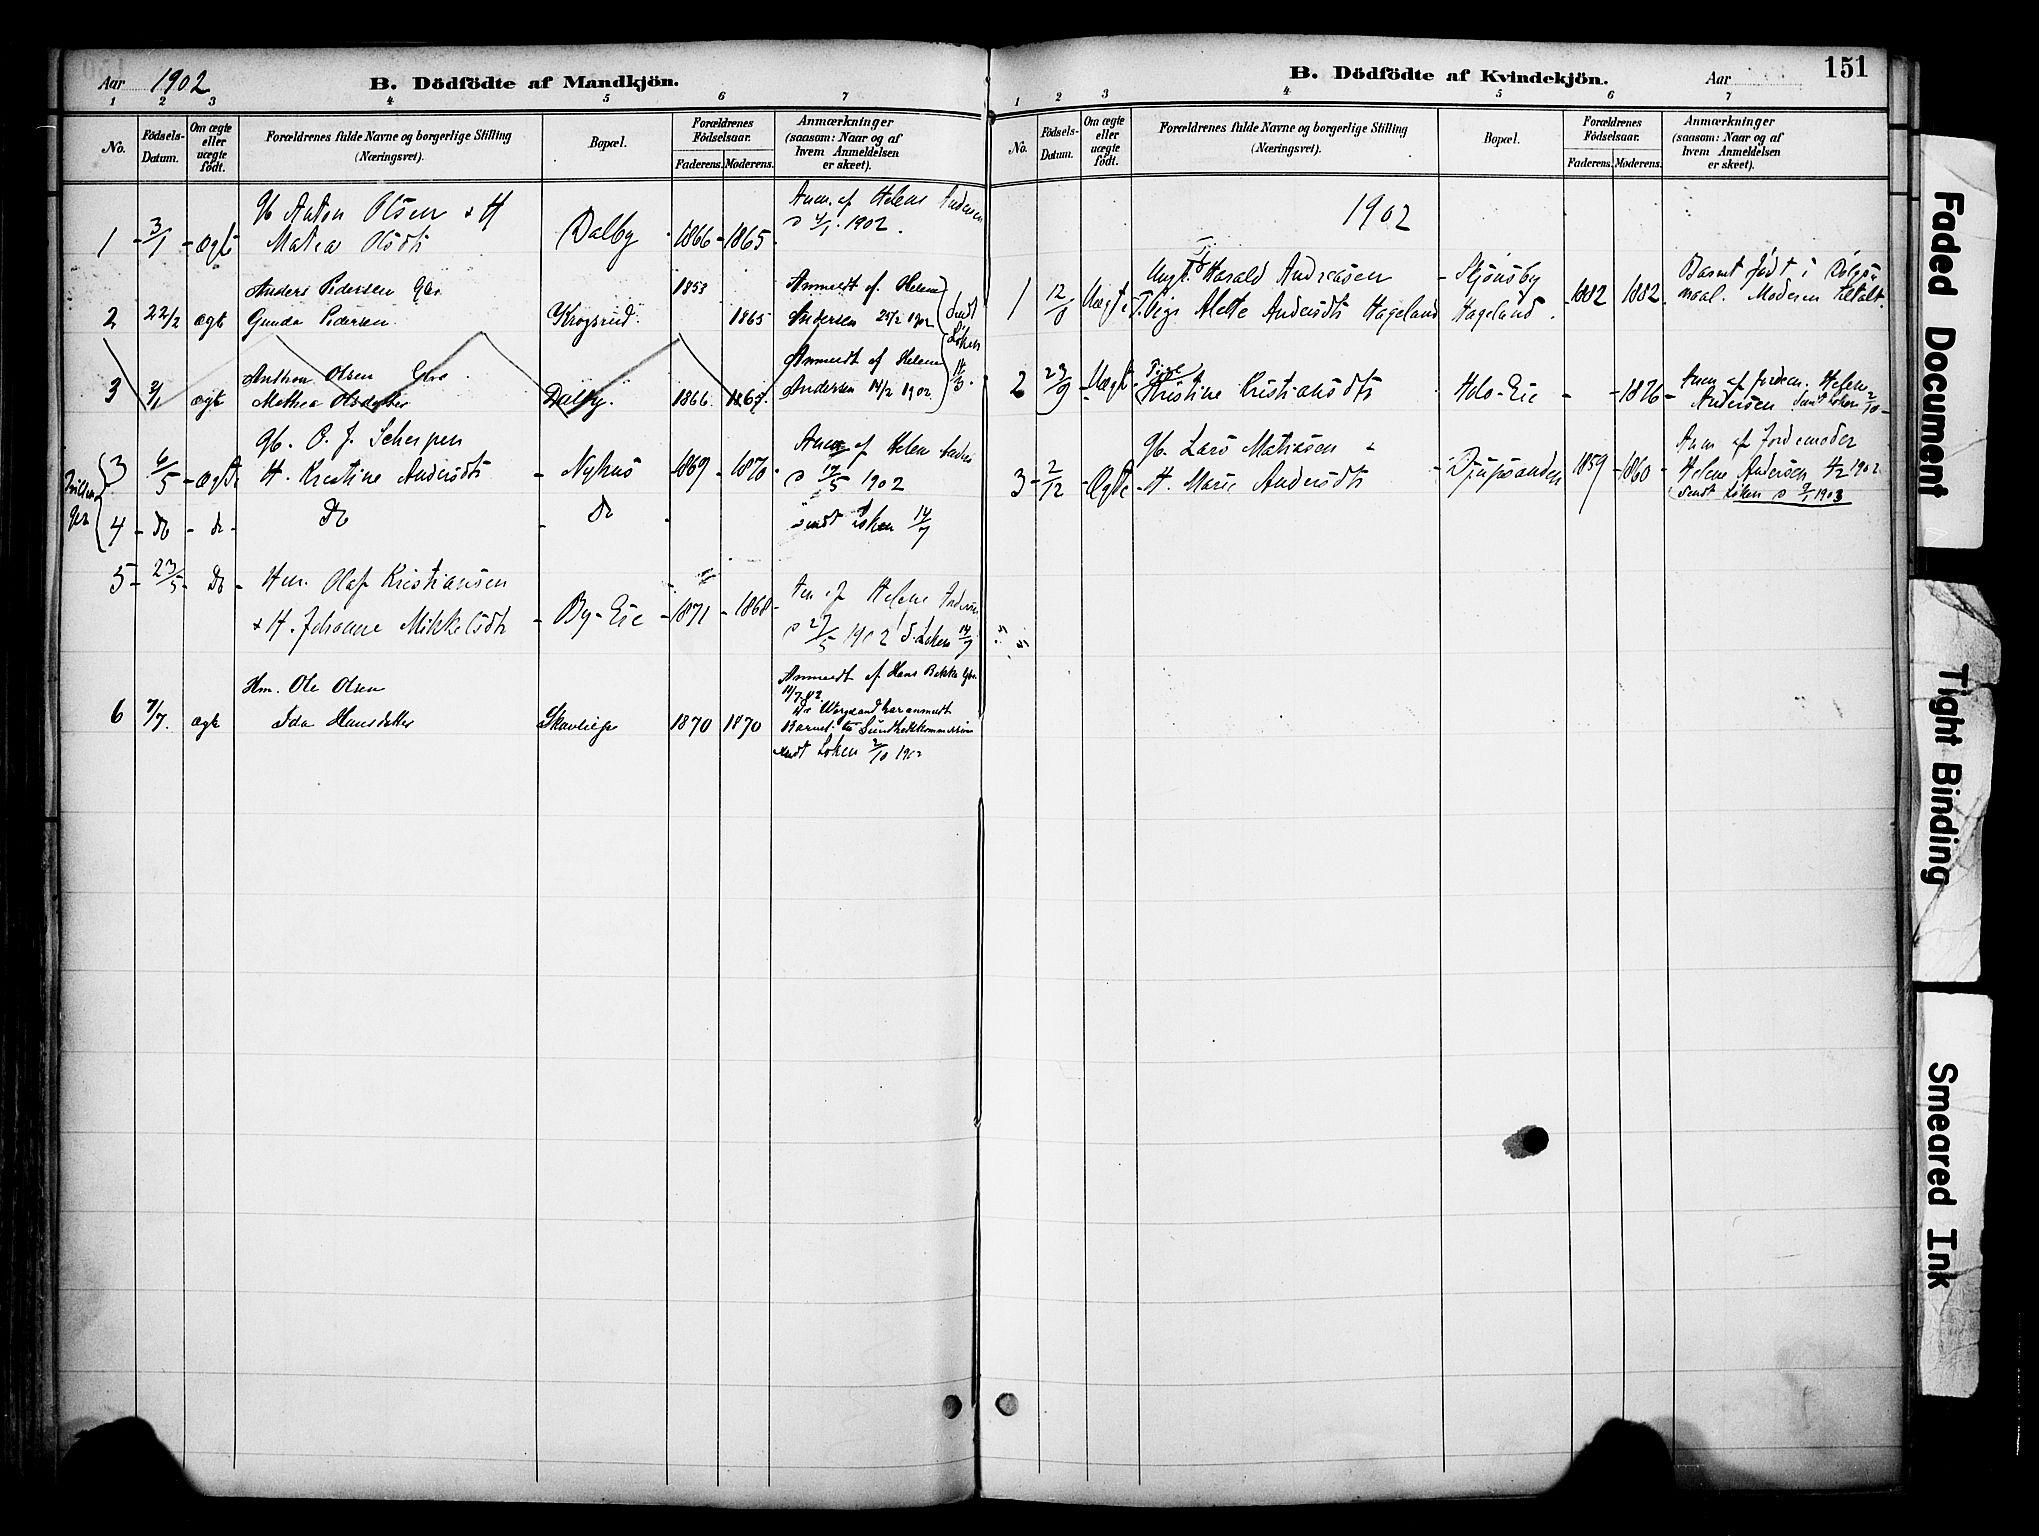 Aar 1902
B. Dödfödte af Mandkjön.
1 2 3 4 5 6 7
No.
Födsels-Datum.
Om ægte eller uægte födt.
Forældrenes fulde Navne og borgerlige Stilling (Næringsvei).
Bopæl.
Forældrenes Födselsaar.
Faderens. Moderens.
Anmærkninger (saasom: Naar og af hvem Anmeldelsen er skeet).
Gb Anton Olsen & H Anm. af Helene Andersen
1 - 3/1 - Ægte Matea Olsdtr Dalby 1866 - 1865 4/1 1902.
Anders Pedersen Gbr 1853 Anmeldt af Helene
2 22/2 ægte Gunda Pedersen Krogsrud 1865 Andersen 25/2 1902 sendt Loken
Anthon Olsen Gbr Anmeldt af Helene
3 3/1 ægte Mathea Olsdatter Dalby. 1866 1865 Andersen 14/2 1902
Gb. O. J. Scherpen Anm af Helene Anders
Tvillinger
3 6/5 - Ægte H. Kristine Andersdtr - Nyhus 1869 - 1870 12/5 1902
4 - Do - do Do - Do sendt Loken 14/7
5 - 23/5 - Do - Hm. Olaf Kristiansen
& H. Johanne Mikkelsdtr - By-Eie - 1871 - 1868 Anm af Helene Andersen
27/5 1902 S. Loken 14/7
Hm. Ole Olsen Anmeldt af Hans Bakke Gbr
6 7/7. ægte Ida Hansdatter 1870 1870
har anmeldt
Barnet til Sundhedskommission
sendt Loken 2/10 1902
B. Dödfödte af Kvindekjön.
Aar
151
1 2 3 4 5 6 7
No.
Födsels-Datum.
Om ægte eller uægte födt.
Forældrenes fulde Navne og borgerlige Stilling (Næringsvei).
Bopæl.
Forældrenes Födselsaar.
Faderens. Moderens.
Anmærkninger (saasom: Naar og af hvem Anmeldelsen er skeet).
1902
Ungk. Harald Andreasen - Skjönsby Barnet födt i
1 Uægte Alette Andersdtr Hageland Hageland. 1882 1882 Moderen
2 23/9 Uægte Pige Kristine Kristiansdtr Holo-Eie - - 1876 - Anm af Jordem. Helene
Andersen Sendt Loken 2/10 -
Gb. Lars Matiasen & Anm af Jordemoder
3 - 2/12 - Ægte - H. Marie Andersdtr - Djupsanden 1859 - 1860 - Helene Andersen 1902
Sendt Loken 9/1 1903
Faded Document
Tight Binding
Smeared Ink